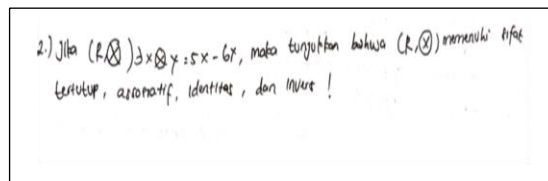 2.) Jika (R,⊗) ∃ x ⊗ y = 5x - 6x, maka tunjukkan bahwa (R,⊗) memenuhi sifat
tertutup, asosiatif, identitas, dan invers !